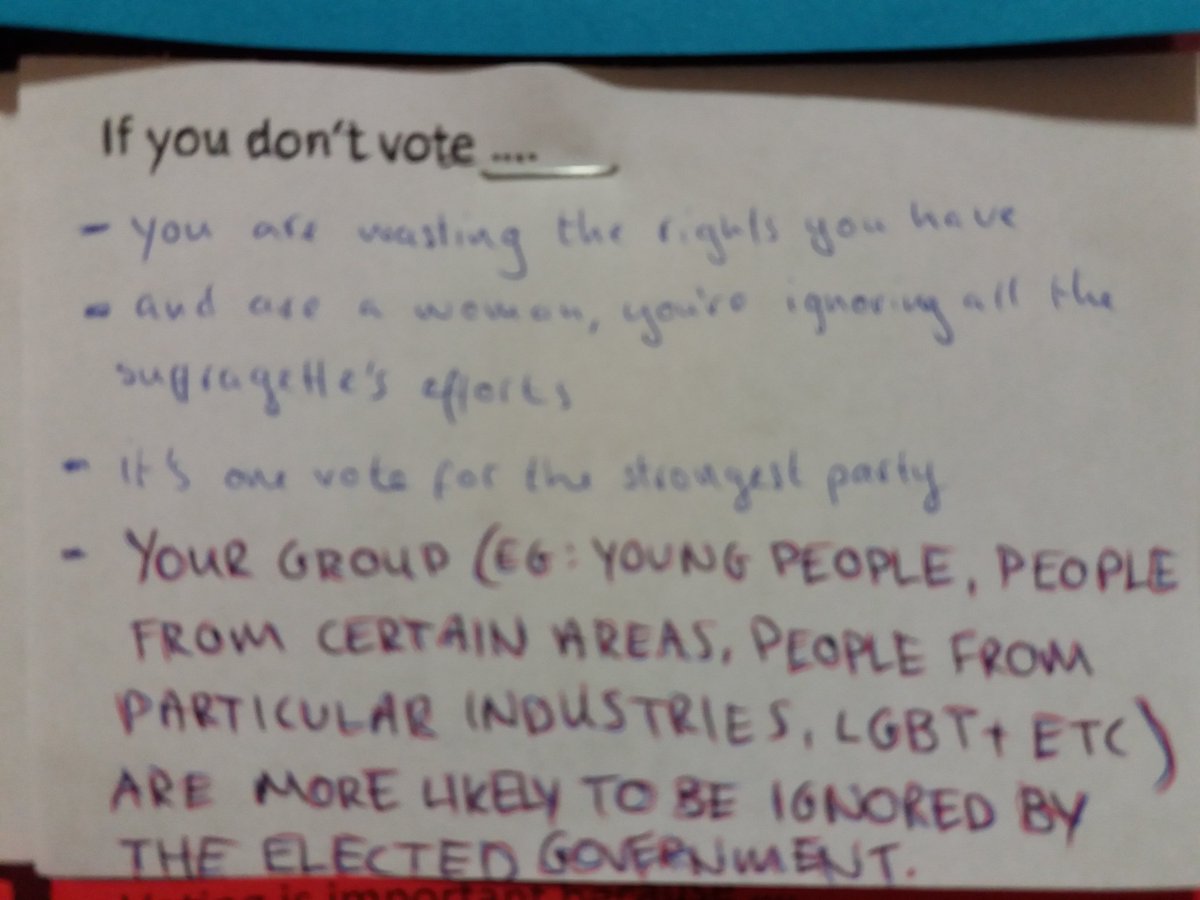 If you don't vote ....
- you are wasting the rights you have
- and are a woman, you're ignoring all the
suffragette's efforts
- it's one vote for the strongest party
- YOUR GROUP (EG: YOUNG PEOPLE, PEOPLE
FROM CERTAIN AREAS, PEOPLE FROM
PARTICULAR INDUSTRIES, LGBT+ ETC)
ARE MORE LIKELY TO BE IGNORED BY
THE ELECTED GOVERNMENT.
Voting is important because